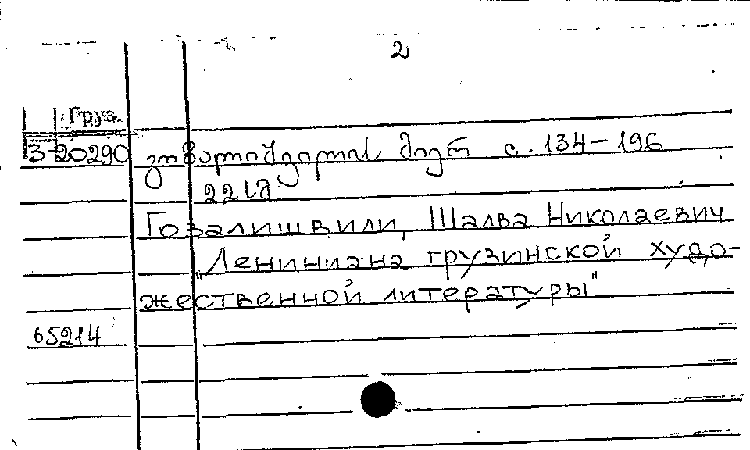 2
Груз.
3-20290
გოზალიშვილის მიერ с. 134-196
Гозалишвили, Шалва Николаевич
„Лениниана грузинской худо-
жественной литературы"
65214